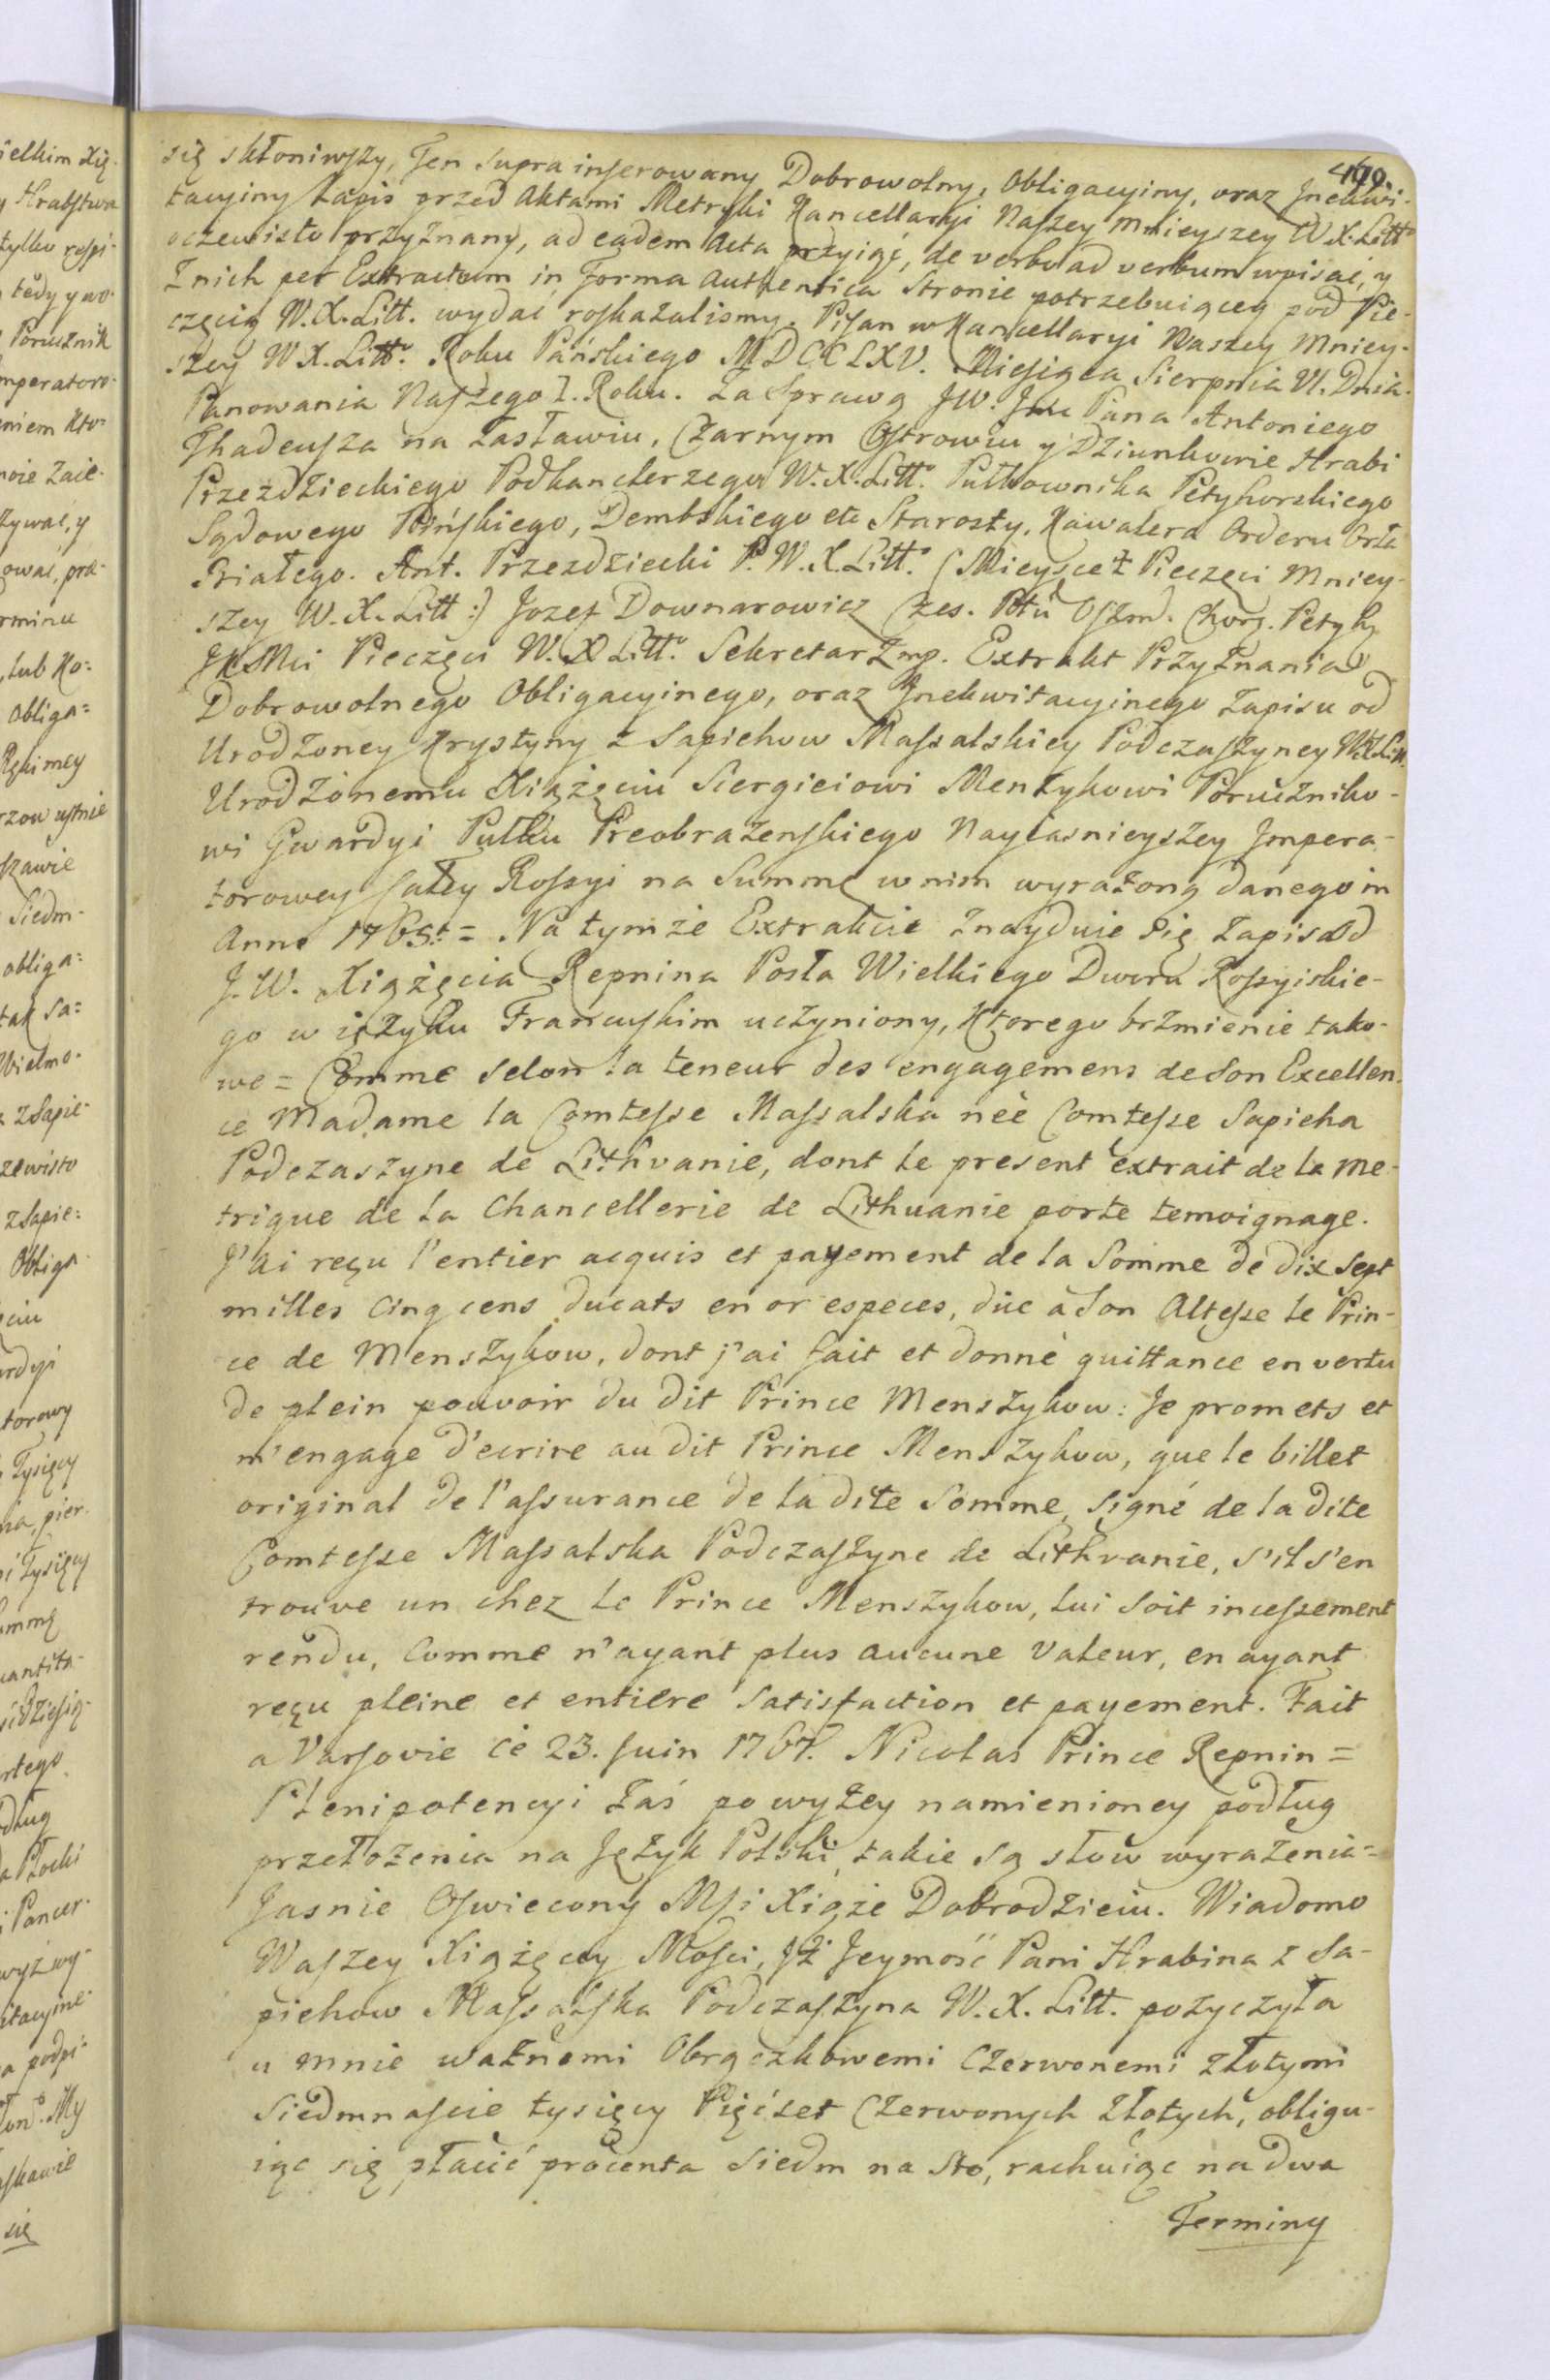 470.
się skłoniwszy, Ten supra inserowany Dobrowolny, Obligacyiny, oraz Jnekwi-
tacyiny Zapis przed Aktami Metryki Kancellaryi Naszey Mnieyszey W.X. Litt:
oczewisto przyznany, ad eadem Acta przyiąć, de verbo ad verbum wpisać, y
z nich per Extractum in Forma Authentica Stronie potrzebuiącey pod Pie-
częcią W.X. Litt. wydać roskazalismy. Pisan w Kancellaryi Naszey Mniey-
szey W X. Litt. Roku Pańskiego MDCCLXV. Miesiąca Sierpnia VI. Dnia.
Panowania Naszego I. Roku. Za Sprawą JW. Jmć Pana Antoniego
Thadeusza na Zasławiu, Czarnym Ostrowiu y Dziunkowie Hrabi
Przezdzieckiego Podkanclerzego W.X. Litt. Pułkownika Petyhorskiego
Sądowego Pińskiego, Dembskiego etc Starosty, Kawalera Orderu Orła
Białego. Ant. Przezdziecki P. W.X. Litt. (Mieysce Pieczęci Mniey-
szey W.X. Litt:) Jozef Downarowicz Czes. Pttu Oszm. Chorą. Petyh.
JKMci Pieczęci W.X Litt. Sekretarz mp. Extrakt Przyznania
Dobrowolnego Obligacyinego, oraz Jnekwitacyinego Zapisu od
Urodzoney Krystyny z Sapiehow Massalskiey Podczaszyney W.X. Litt.
Urodzonemu Xiążęciu Siergieiowi Menzykowi Poruczniko-
wi Gwardyi Pułku Preobrazenskiego Nayiasnieyszey Jmpera-
torowey Całey Rossyi na Summę w nim wyrażoną danego in
Anno 1765.t = Na tymże Extrakcie znayduie się Zapis od
J.W. Xiążęcia Repnina Posła Wielkiego Dworu Rossyiskie-
go w ięzyku Francuskim uczyniony, Ktorego brzmienie tako-
we = Comme selon la teneur des engagemens de Son Excellen-
ce Madame la Comtesse Massalska neè Comtesse Sapieha
Podczaszyne de Lithvanie, dont le present extrait de la me-
trique de la Chancellerie de Lithuanie porte temoignage.
J'ai reçu l'entier acquis et payement de la Somme de dix sept
milles cinq cens ducats en or especes, düe a Son Altesse le Prin-
ce de Menszykow, dont j'ai fait et donnè quittance en vertu
de plein pouvoir du dit Prince Menszykow: Je promets et
m'engage d'ecrire au dit Prince Menszykow, que le billet
original de l'assurance de la dite Somme, signé de la dite
Comtesse Massalska Podczaszyne de Lithvanie, s'il s'en
trouve un chez le Prince Menszykow, lui soit incessement
rendu, Comme n'ayant plus aucune valeur, en ayant
reçu pleine et entiere Satisfaction et payement. Fait
a Varsovie cè 23. Juin 1767. Nicolas Prince Repnin =
Plenipotencyi zaś powyżey namienioney podług
przełożenia na Język Polski, takie są słow wyrażenia =
Jasnie Oswiecony Msi Xiąże Dobrodzieiu. Wiadomo
Waszey Xiążęcey Mości, Jż Jeymość Pani Hrabina z Sa-
piehow Massalska Podczaszyna W.X. Litt. pożyczyła
u mnie ważnemi Obrączkowemi Czerwonemi złotymi
Siedmnaście tysięcy Pięćset Czerwonych złotych, obligu-
iąc się płacić procenta Siedm na sto, rachuiąc na dwa
Terminy